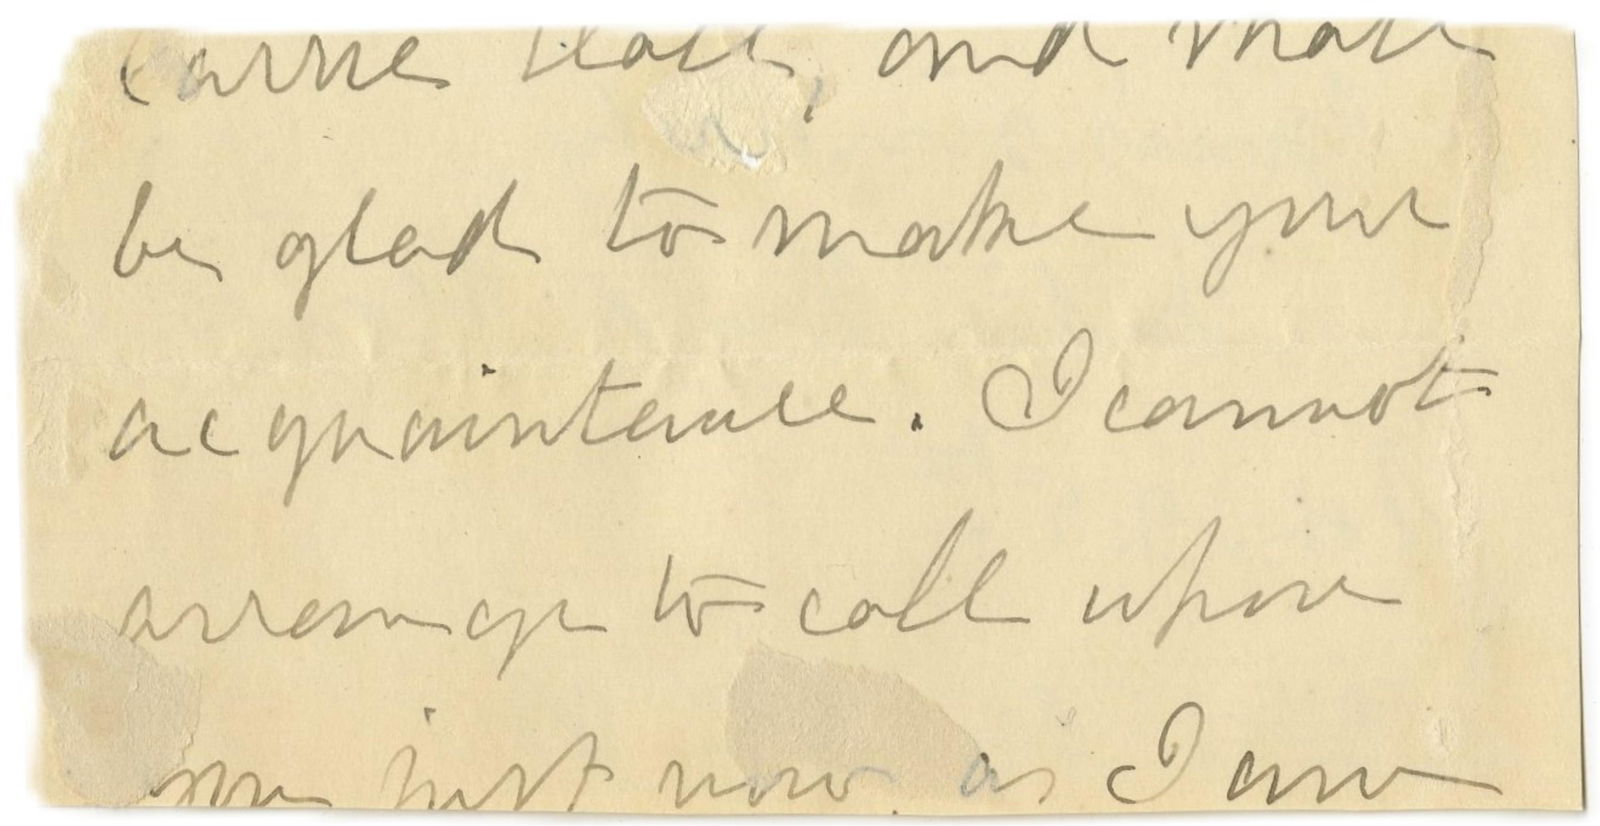 Carrie Hall, and shall
be glad to make your
acquaintance. I cannot
arrange to call upon
you just now, as I am